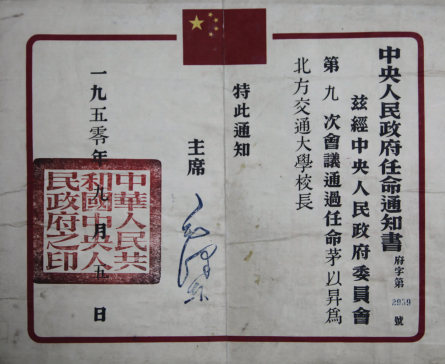 中央人民政府任命通知書
府字第 2959 號
茲經中央人民政府委員會
第九次會議通過任命茅以昇為
北方交通大學校長
特此通知
主席 毛澤東
一九五零年九月五日
中華人民共和國中央人民政府之印